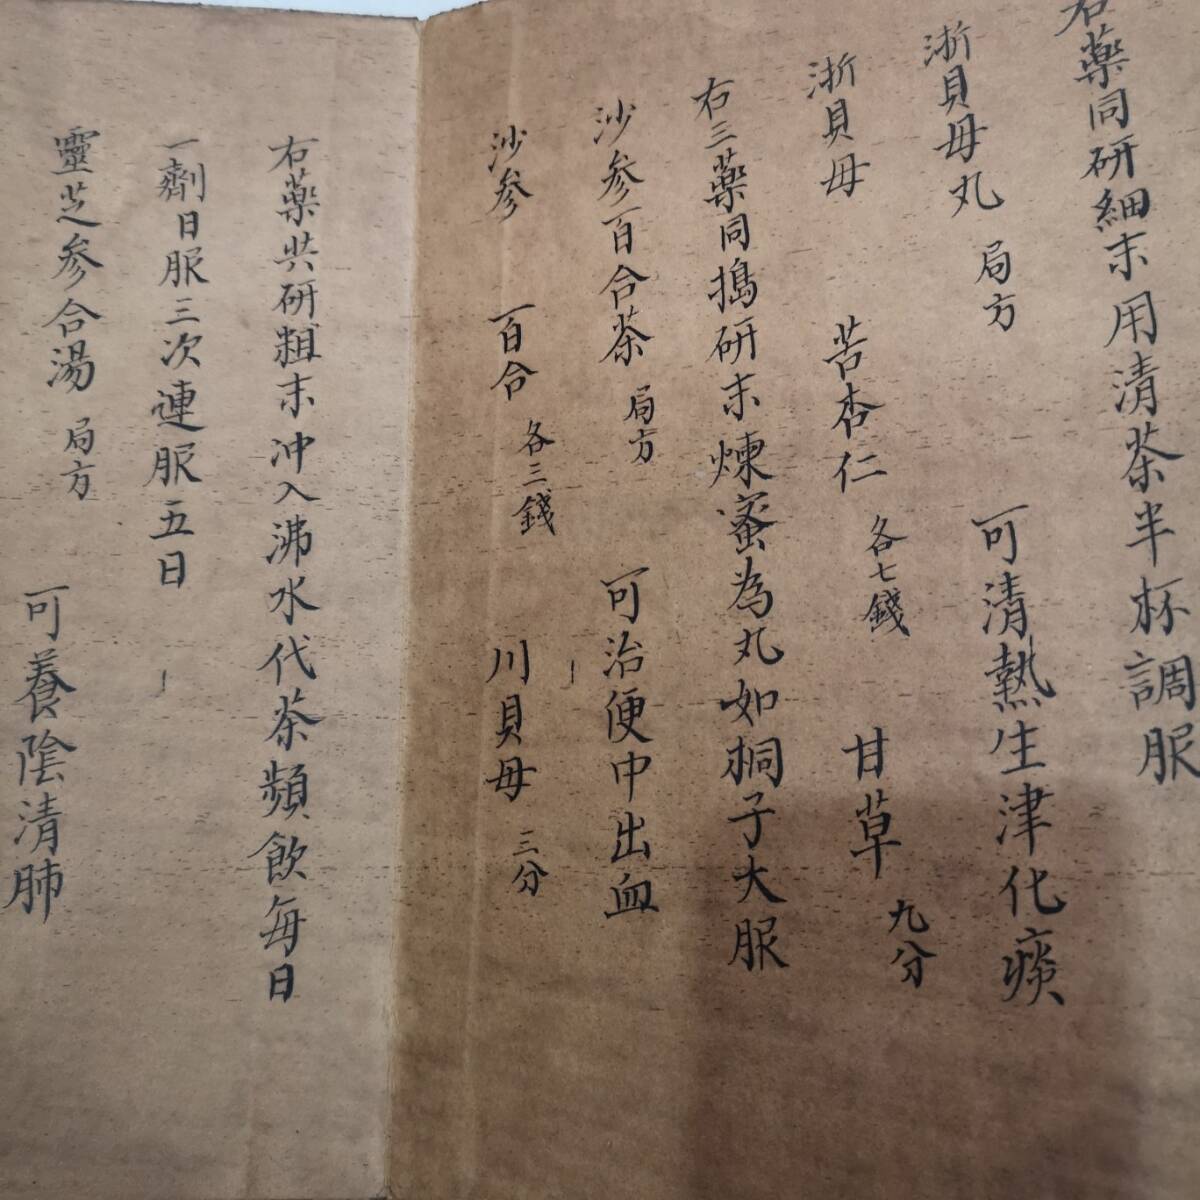 右藥同研細末用清茶半杯調服
浙貝母丸 局方 可清熱生津化痰
浙貝母 苦杏仁 各七錢 甘草 九分
右三藥同搗研末煉蜜為丸如桐子大服
沙参百合茶 局方 可治便中出血
沙参 百合 各三錢 川貝母 三分
右藥共研粗末沖入沸水代茶頻飲每日
一劑日服三次連服五日
靈芝参合湯 局方 可養陰清肺